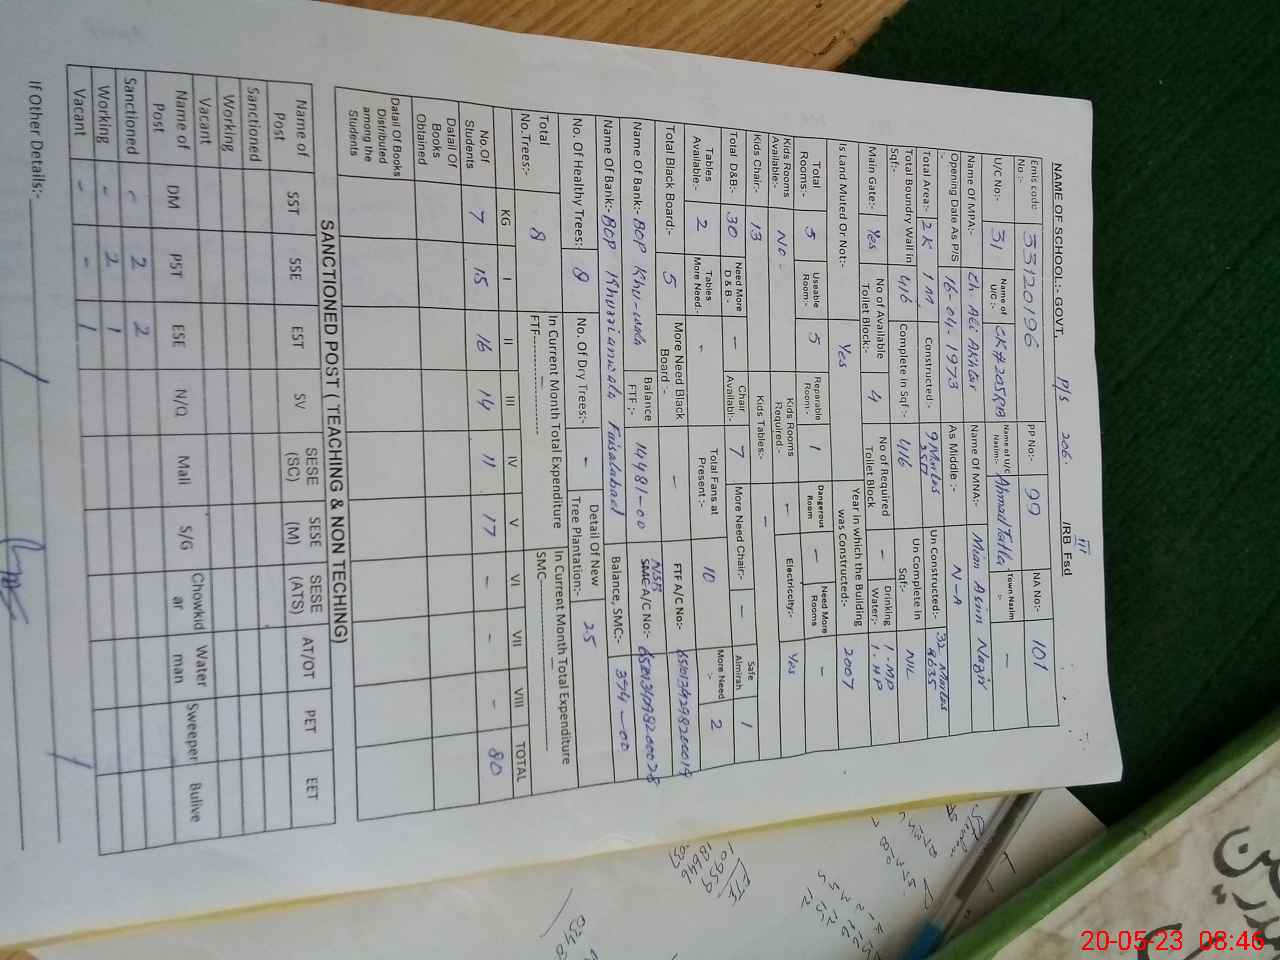 NAME OF SCHOOL:- GOVT, P/S 206. III /RB Fsd
Emis code No :- 33120196 PP No:- 99 NA No:- 101
U/C No:- 31 Name of U/C :- CK#205RB Name of U/C Nazim:- Ahmad Talla Town Nazim :- —
Name Of MPA:- Ch. Ali Akhtar Name Of MNA:- Mian Asim Nazir
Opening Date As P/S - 16-04-1973 As Middle :- N-A
Total Area:- 2K 1M Constructed:- 9 Marlas Un Constructed:- 32 Marlas
Total Boundry Wall in Sqf:- 416 Complete in Sqf:- 416 Un Complete in Sqf:- NIL
Main Gate:- Yes No of Available Toilet Block:- 4 No of Required Toilet Block - Drinking Water:- 1-MP 1-HP
Is Land Muted Or Not:- Yes Year in which the Building was Constructed:- 2007
Total Rooms:- 5 Useable Room:- 5 Reparable Room:- 1 Dangerous Room — Need More Rooms -
Kids Rooms Available:- No - Kids Rooms Required:- — Electriccity:- Yes
Kids Chair:- 13 Kids Tables:- —
Total D&B:- 30 Need More D & B - — Chair Availabl:- 7 More Need Chair:- — Safe Almirah 1
Tables Available:- 2 Tables More Need:- - Total Fans at Present :- 10 More Need :- 2
Total Black Board:- 5 More Need Black Board :- — FTF A/C No:-
Name Of Bank:- BOP Khu-wala Balance FTF :- 14481-00 NSB SMC A/C No:-
Name Of Bank:- BOP Khurrianwala Faisalabad Balance, SMC:- 374-00
No. Of Healthy Trees:- 8 No. Of Dry Trees:- - Detail Of New Tree Plantation:- 25
Total No.Trees:- 8 In Current Month Total Expenditure FTF------------- In Current Month Total Expenditure SMC-------------
KG I II III IV V VI VII VIII TOTAL
No.Of Students 7 15 16 14 11 17 - - - 80
Datail Of Books Obtained
Datail Of Books Distributed among the Students
SANCTIONED POST ( TEACHING & NON TECHING)
Name of Post SST SSE EST SV SESE (SC) SESE (M) SESE (ATS) AT/OT PET EET
Sanctioned
Working
Vacant
Name of Post DM PST ESE N/Q Mali S/G Chowkid ar Water man Sweeper Bulive
Sanctioned - 2 2
Working - 2 1
Vacant - - 1
If Other Details:-
20-05-23 08:46